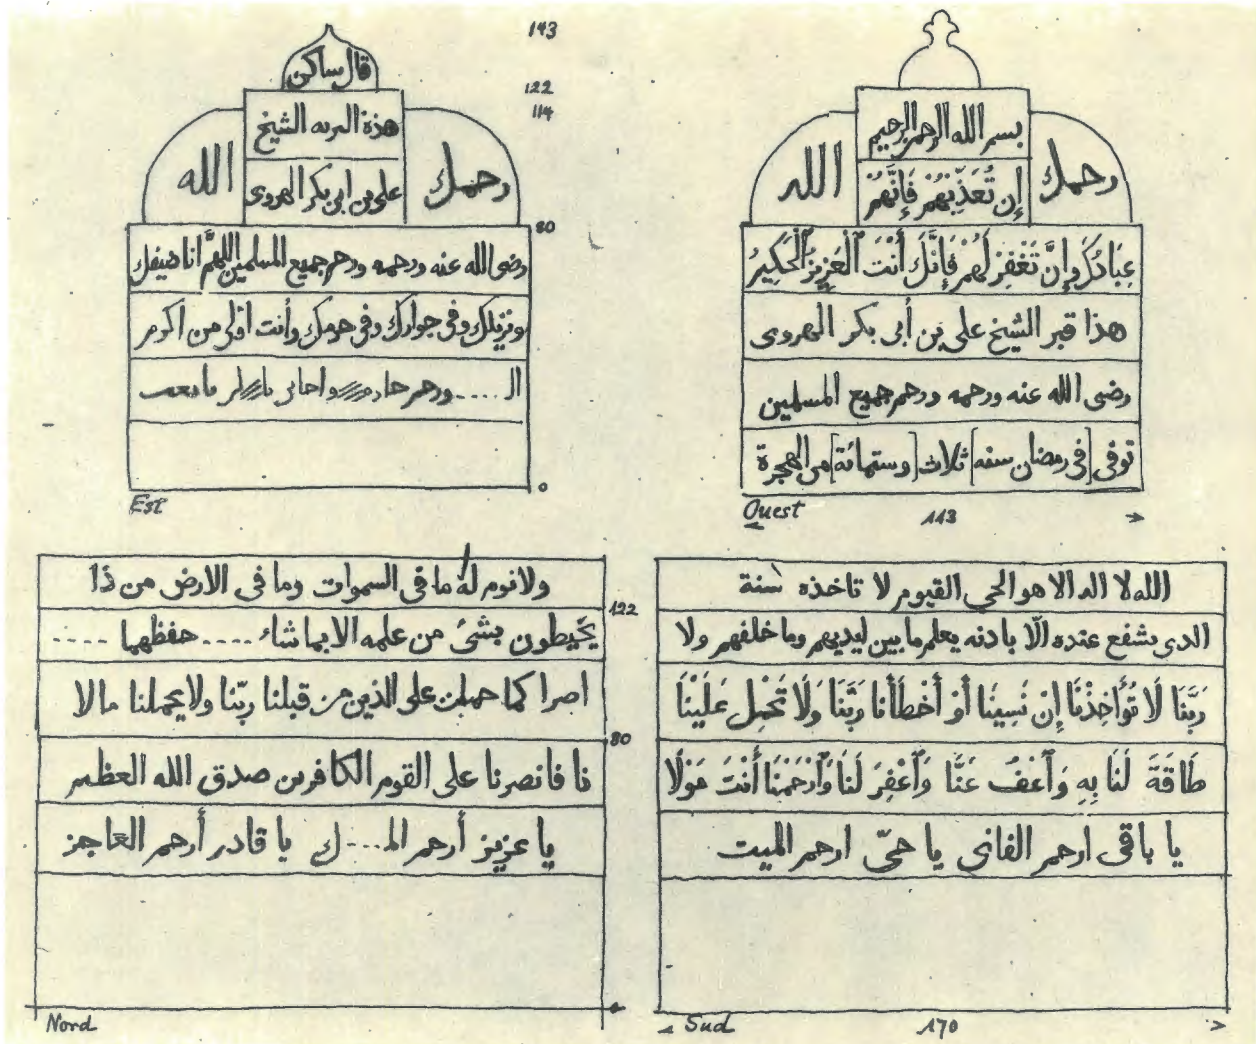 143
قال ساكن
122
114
هذة البربه الشيخ
على بن ابى بكر الهروى
رحمك
الله
80
رضى الله عنه ورحمه ورحم جميع المسلمين اللهمَّ انا ضيفك
ونزيلك وفى جوارك وفى حرمك وأنت اولى من اكرم
الـ .... ورحم
0
Est
بسم الله الرحمن الرحيم
إن تُعَذِّبْهُمْ فَإِنَّهُمْ
رحمك
الله
عِبَادُكَ وإِن تَغْفِرْ لَهُمْ فَإِنَّكَ أَنْتَ ٱلْعَزِيزُ ٱلْحَكِيمُ
هذا قبر الشيخ على بن أبى بكر الهروى
رضى الله عنه ورحمه ورحم جميع المسلمين
توفى [فى رمضان سنه] ثلاث [وستمائة] من الهجرة
Ouest
113
ولا نوم لهُ ما فى السموات وما فى الارض من ذا
122
يحيطون بشئ من علمه الا بما شاء .... حفظهما ....
اصرا كما حملت على الذين من قبلنا ربّنا ولا يحملنا مالا
80
نا فانصرنا على القوم الكافرين صدق الله العظيم
يا عزيز أرحم الـ ... ك يا قادر أرحم العاجز
Nord
الله لا اله الا هو الحي القيوم لا تاخذه سنة
الدى يشفع عنده الّا بادنه يعلم ما بين ايديهم وما خلفهم ولا
رَبَّنَا لَا تُؤَاخِذْنَا إِن نَسِينَا أَوْ أَخْطَأنَا رَبَّنَا وَلَا تَحْمِل عَلَيْنَا
طَاقَةَ لَنَا بِهِ وَٱعْفُ عَنَّا وَٱغْفِرَ لَنَا وَٱرْحَمْنَا أَنْتَ مَوْلَا
يا باقى ارحم الفانى يا حىّ ارحم الميت
Sud
170